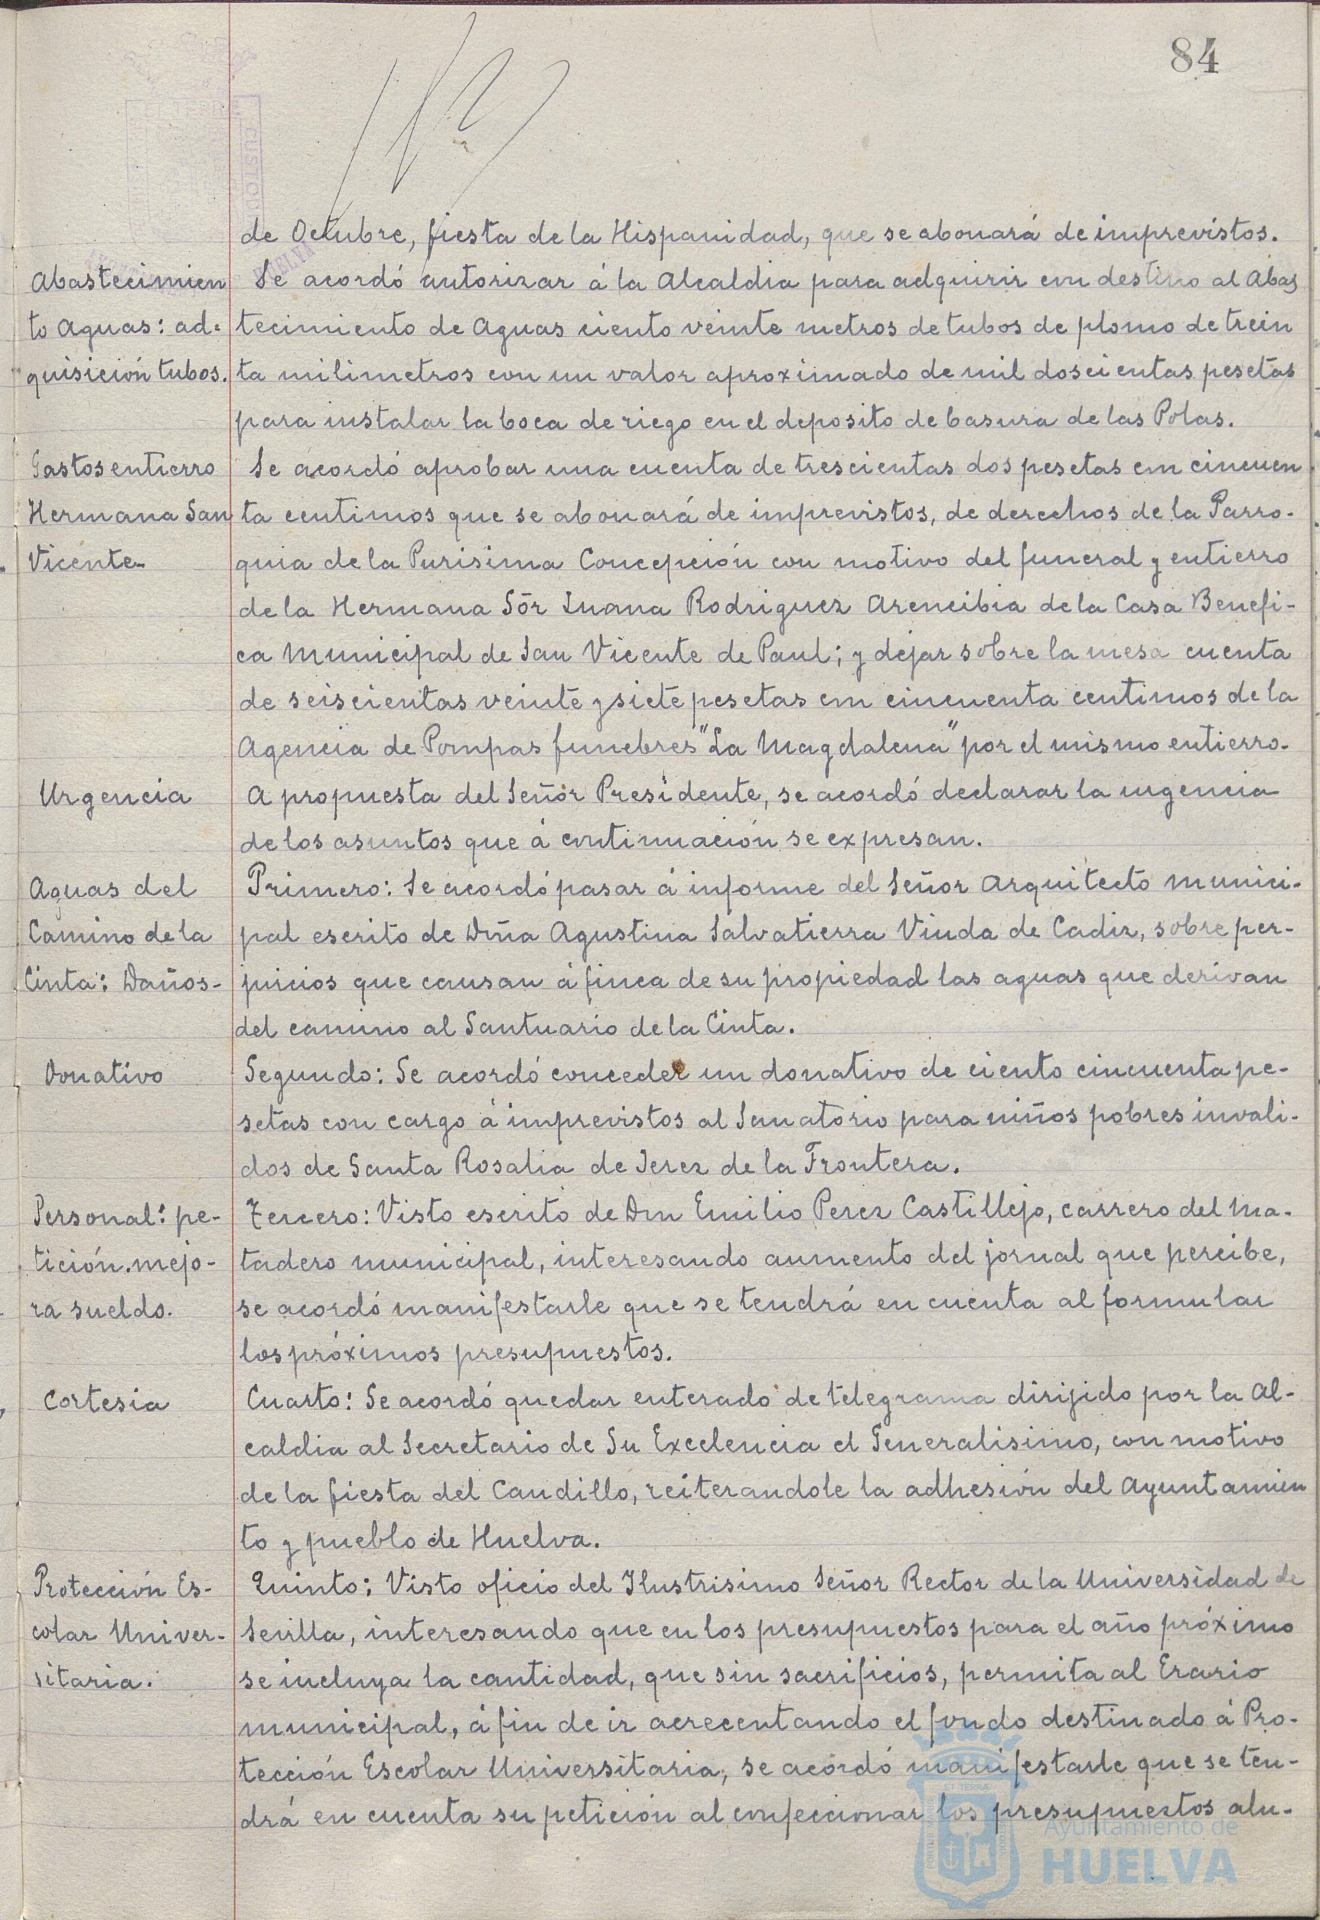 84
de Octubre, fiesta de la Hispanidad, que se abonará de imprevistos.
Abastecimien
to Aguas: ad-
quisición tubos.
Se acordó autorizar á la Alcaldia para adquirir con destino al Abas
tecimiento de Aguas ciento veinte metros de tubos de plomo de trein
ta milimetros con un valor aproximado de mil doscientas pesetas
para instalar la boca de riego en el deposito de basura de las Polas.
Gastos entierro
Hermana San
Vicente-
Se acordó aprobar una cuenta de trescientas dos pesetas con cincuen
ta centimos que se abonará de imprevistos, de derechos de la Parro-
quia de la Purisima Concepción con motivo del funeral y entierro
de la Hermana Sōr Juana Rodriguez Arencibia de la Casa Benefi-
ca Municipal de San Vicente de Paul; y dejar sobre la mesa cuenta
de seiscientas veinte y siete pesetas con cincuenta centimos de la
Agencia de Pompas funebres "La Magdalena" por el mismo entierro-
Urgencia
A propuesta del Señor Presidente, se acordó declarar la urgencia
de los asuntos que á continuación se expresan.
Aguas del
Camino de la
Cinta: Daños-
Primero: Se acordó pasar á informe del Señor Arquitecto munici-
pal escrito de Dña Agustina Salvatierra Viuda de Cadiz, sobre per-
juicios que causan á finca de su propiedad las aguas que derivan
del camino al Santuario de la Cinta.
Donativo
Segundo: Se acordó conceder un donativo de ciento cincuenta pe-
setas con cargo á imprevistos al Sanatorio para niños pobres invali-
dos de Santa Rosalia de Jerez de la Frontera.
Personal: pe-
tición mejo-
ra sueldo.
Tercero: Visto escrito de Don Emilio Perez Castillejo, carrero del Ma-
tadero municipal, interesando aumento del jornal que percibe,
se acordó manifestarle que se tendrá en cuenta al formular
los próximos presupuestos.
Cortesia
Cuarto: Se acordó quedar enterado de telegrama dirijido por la Al-
caldia al Secretario de Su Excelencia el Generalisimo, con motivo
de la fiesta del Caudillo, reiterandole la adhesión del Ayuntamien
to y pueblo de Huelva.
Protección Es-
colar Univer-
sitaria.
Quinto: Visto oficio del Ilustrisimo Señor Rector de la Universidad de
Sevilla, interesando que en los presupuestos para el año próximo
se incluya la cantidad, que sin sacrificios, permita al Erario
municipal, á fin de ir acrecentando el fondo destinado á Pro-
tección Escolar Universitaria, se acordó manifestarle que se ten-
drá en cuenta su petición al confeccionar los presupuestos alu-
Ayuntamiento de
HUELVA